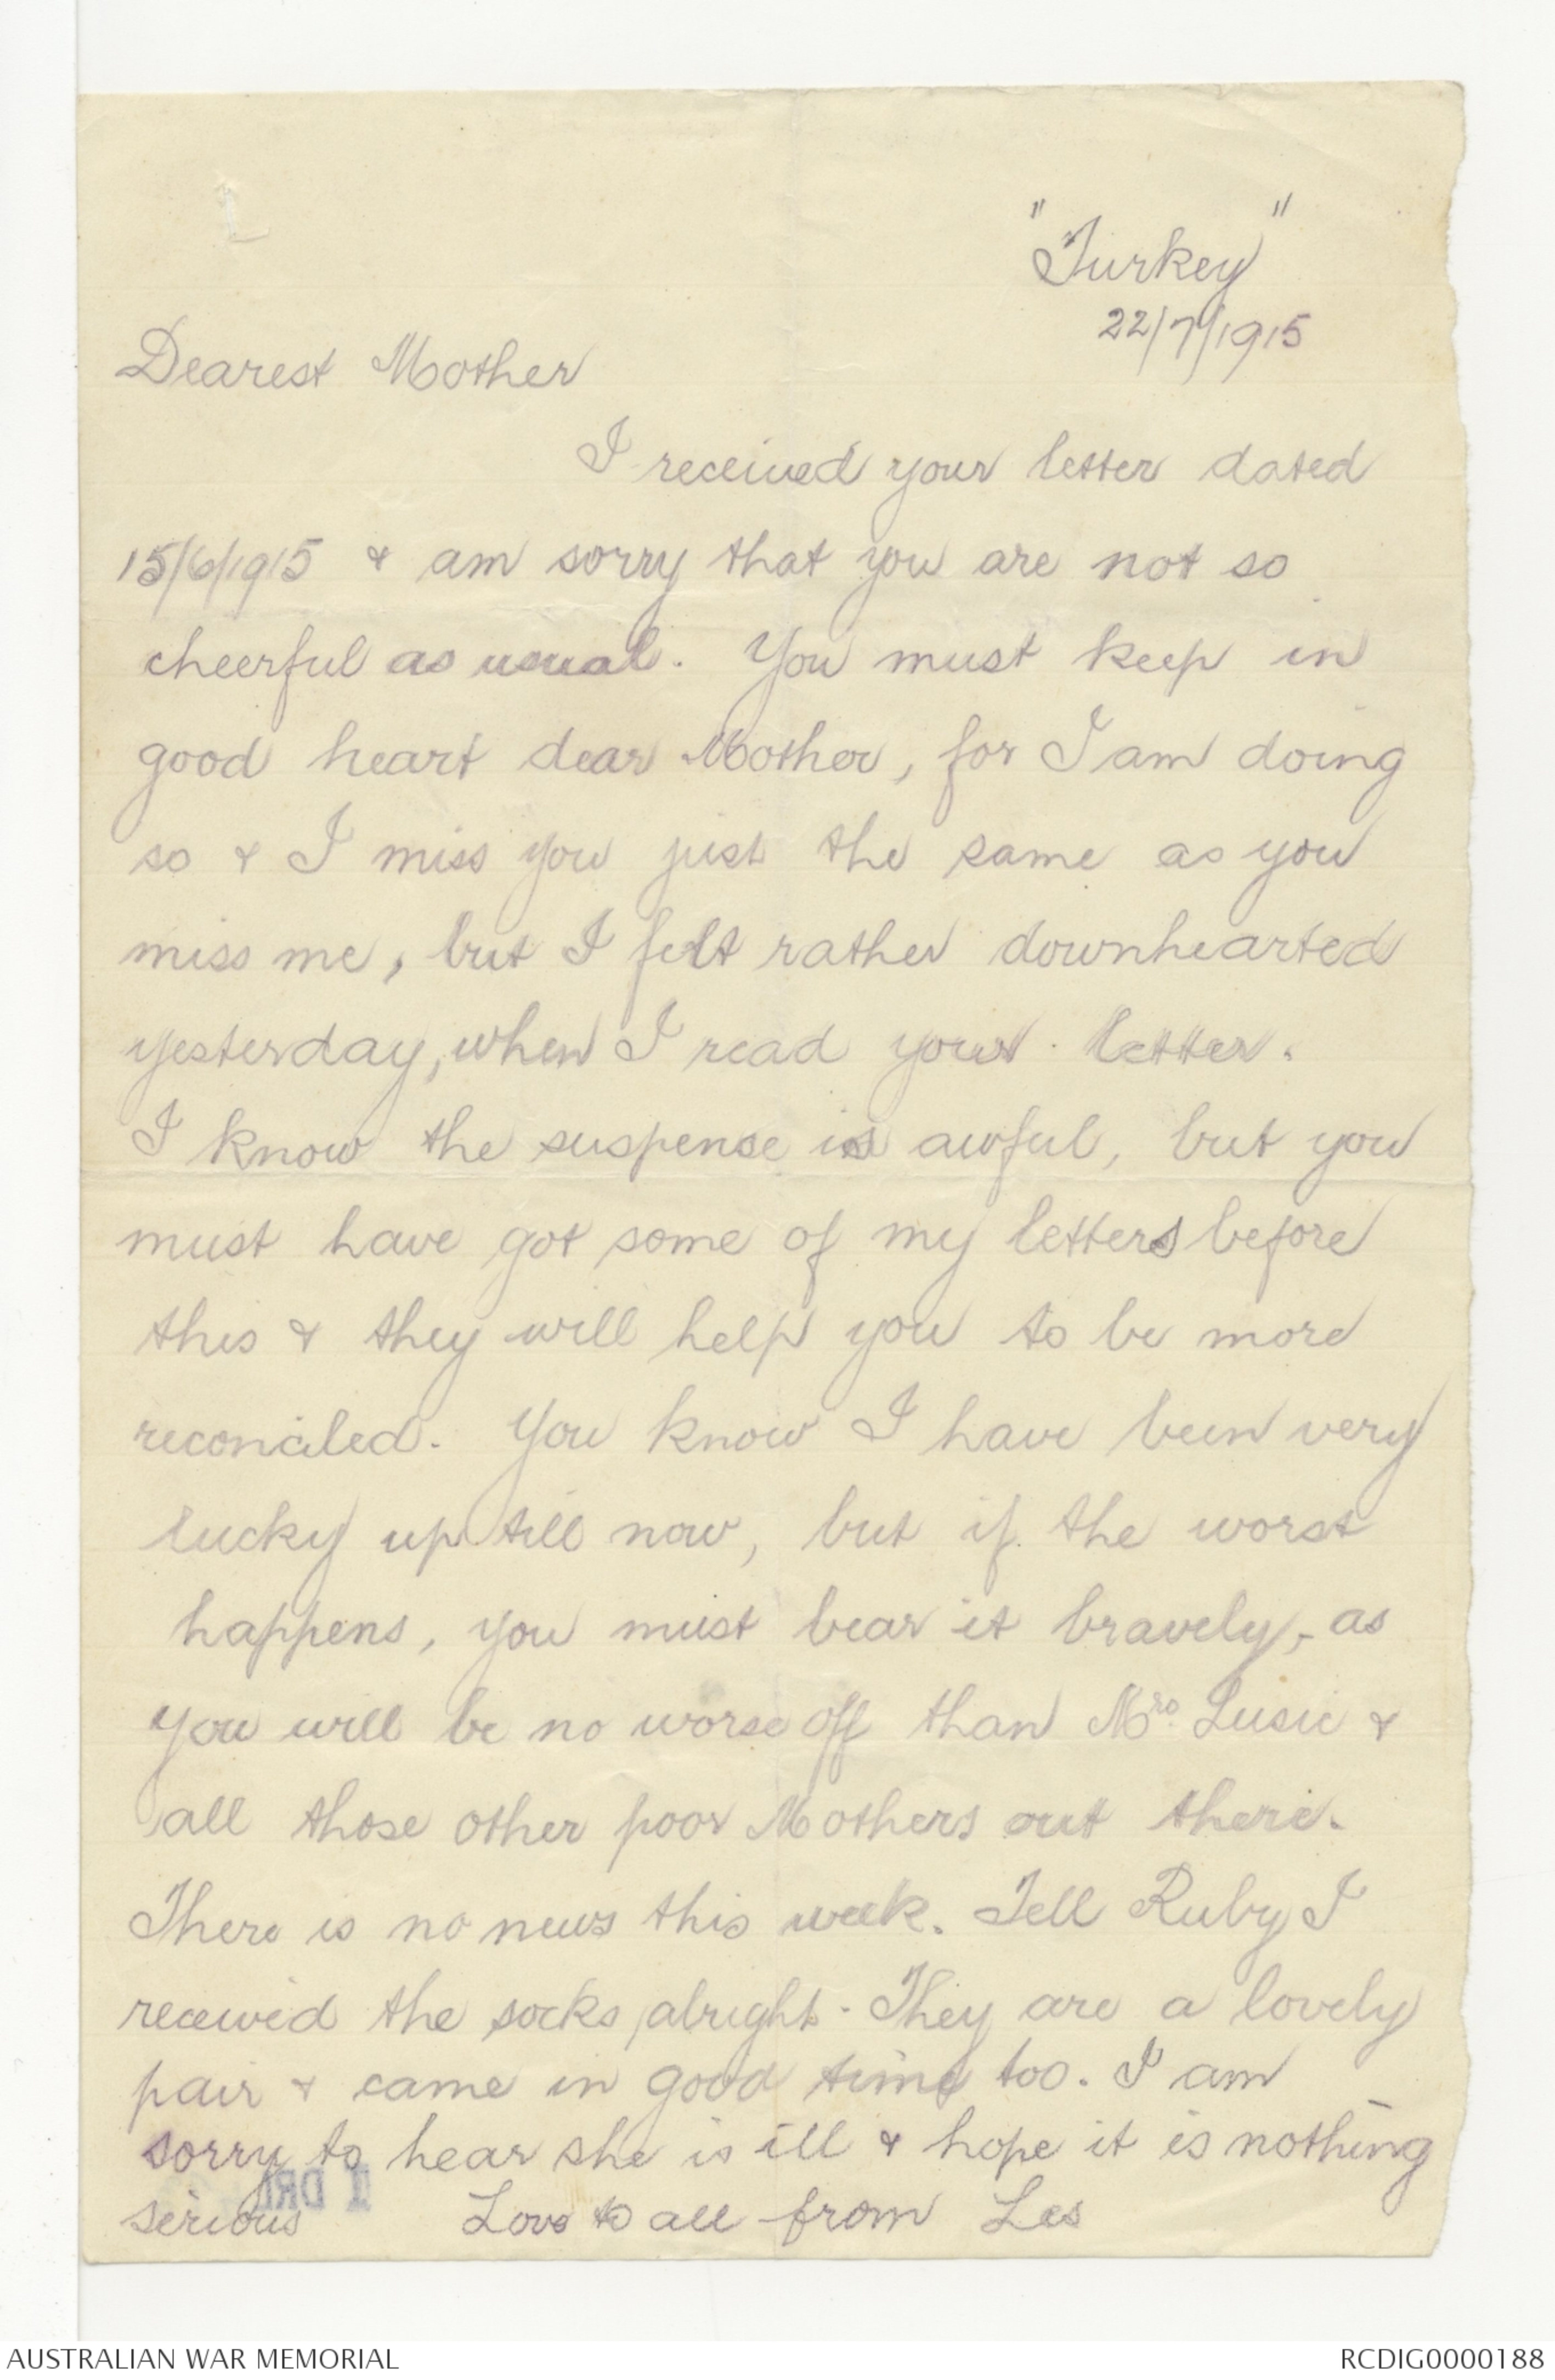 "Turkey"
22/7/1915
Dearest Mother
I received your letter dated
15/6/1915 & am sorry that you are not so
cheerful as usual. You must keep in
good heart dear Mother, for I am doing
so & I miss you just the same as you
miss me, but I felt rather downhearted
yesterday, when I read your letter.
I know the suspense is awful, but you
must have got some of my letters before
this & they will help you to be more
reconciled. You know I have been very
lucky up till now, but if the worst
happens, you must bear it bravely, as
you will be no worse off than Mrs. &
all those other poor Mothers out there.
There is no news this week. Tell Ruby I
received the socks alright. They are a lovely
pair & came in good time too. I am
sorry to hear she is ill & hope it is nothing
serious Love to all from Les
1 DRL
AUSTRALIAN WAR MEMORIAL
RCDIG0000188